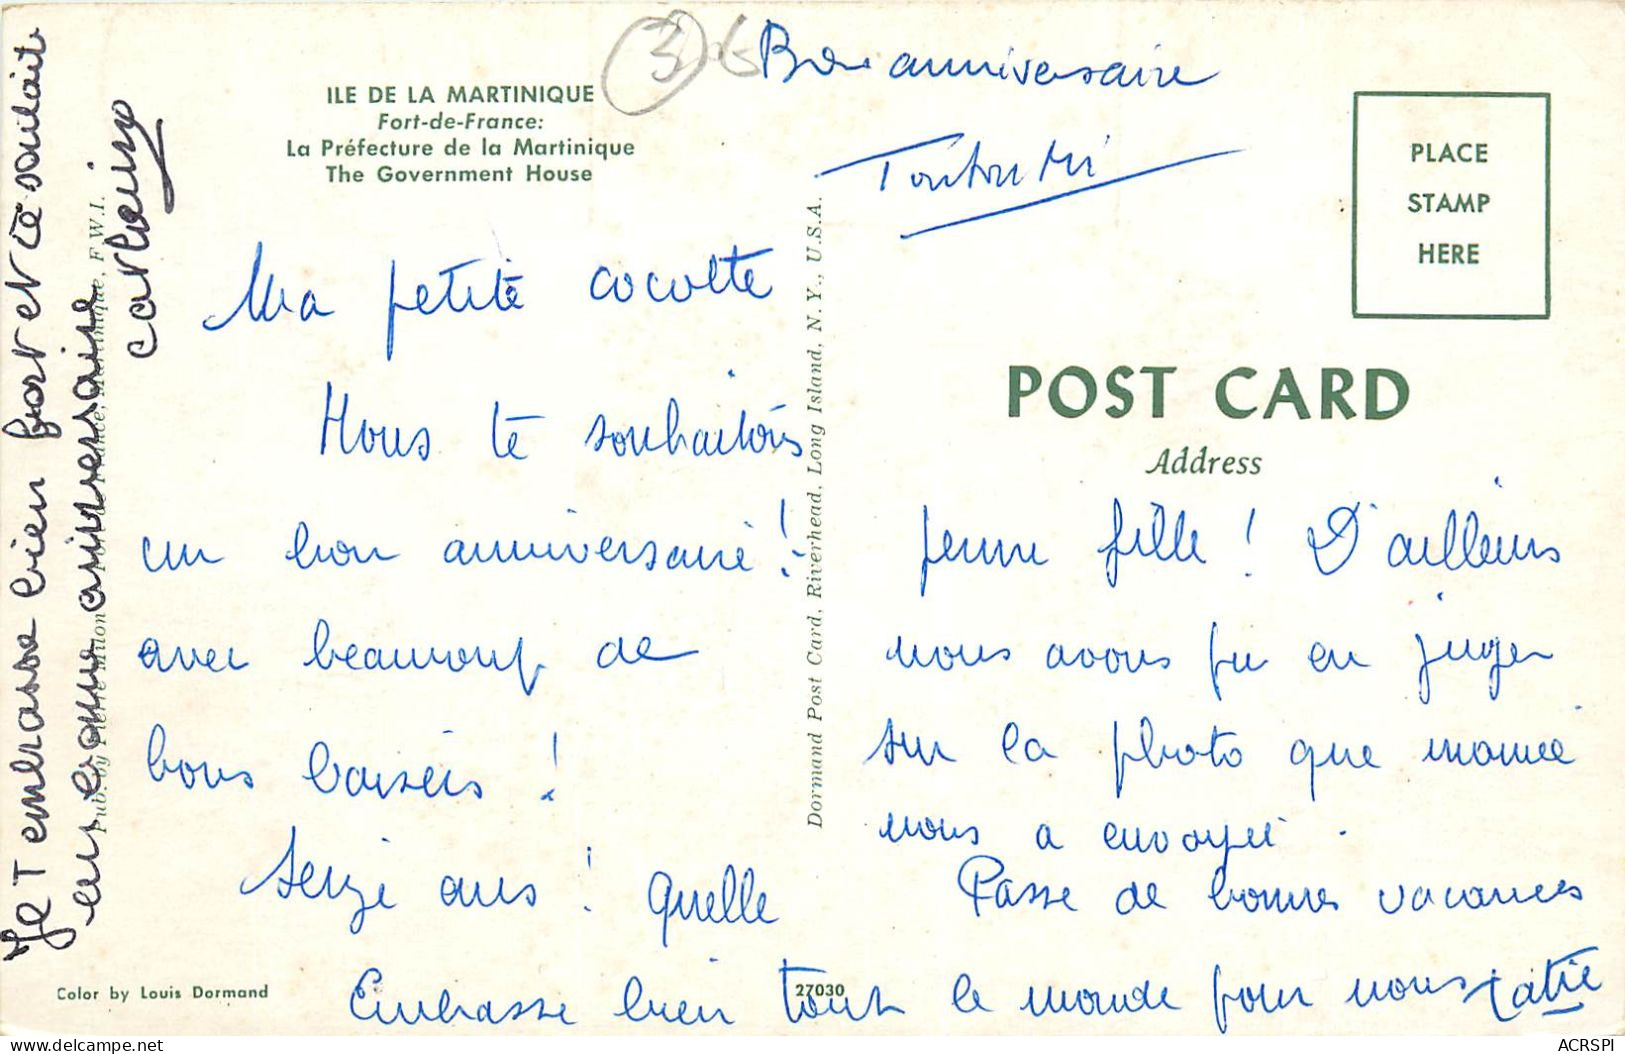 ILE DE LA MARTINIQUE
Fort-de-France:
La Préfecture de la Martinique
The Government House
Bon anniversaire
Ma petite cocotte
Nous te souhaitons
un bon anniversaire !
avec beaucoup de
bons baisers !
Seize ans ! Quelle
jeune fille ! D'ailleurs
nous avons pu en juger
sur la photo que mamie
nous a envoyée .
Passe de bonnes vacances
Embrasse bien tout le monde pour nous Catie
Je T embrasse bien fort et te souhaite
un bonne anniversaire
PLACE
STAMP
HERE
POST CARD
Address
Dormand Post Card, Riverhead, Long Island, N. Y., U.S.A.
Pub. by Pierre Milon, Fort-de-France, Martinique, F.W.I.
Color by Louis Dormand
27030
ACRSPI